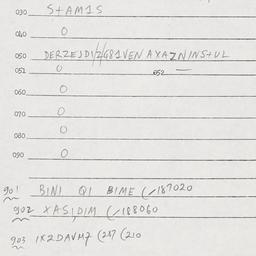 030 S+AM1S
040 O
050 DERZEJDI/Z681VEN AXAZNINS+UL
051 O 052 —
060 O
070 O
080 O
090 O
901 BINI QI BIME (/187020
902 XASIDIM (/188060
903 1K2DAVM7 (287 (210